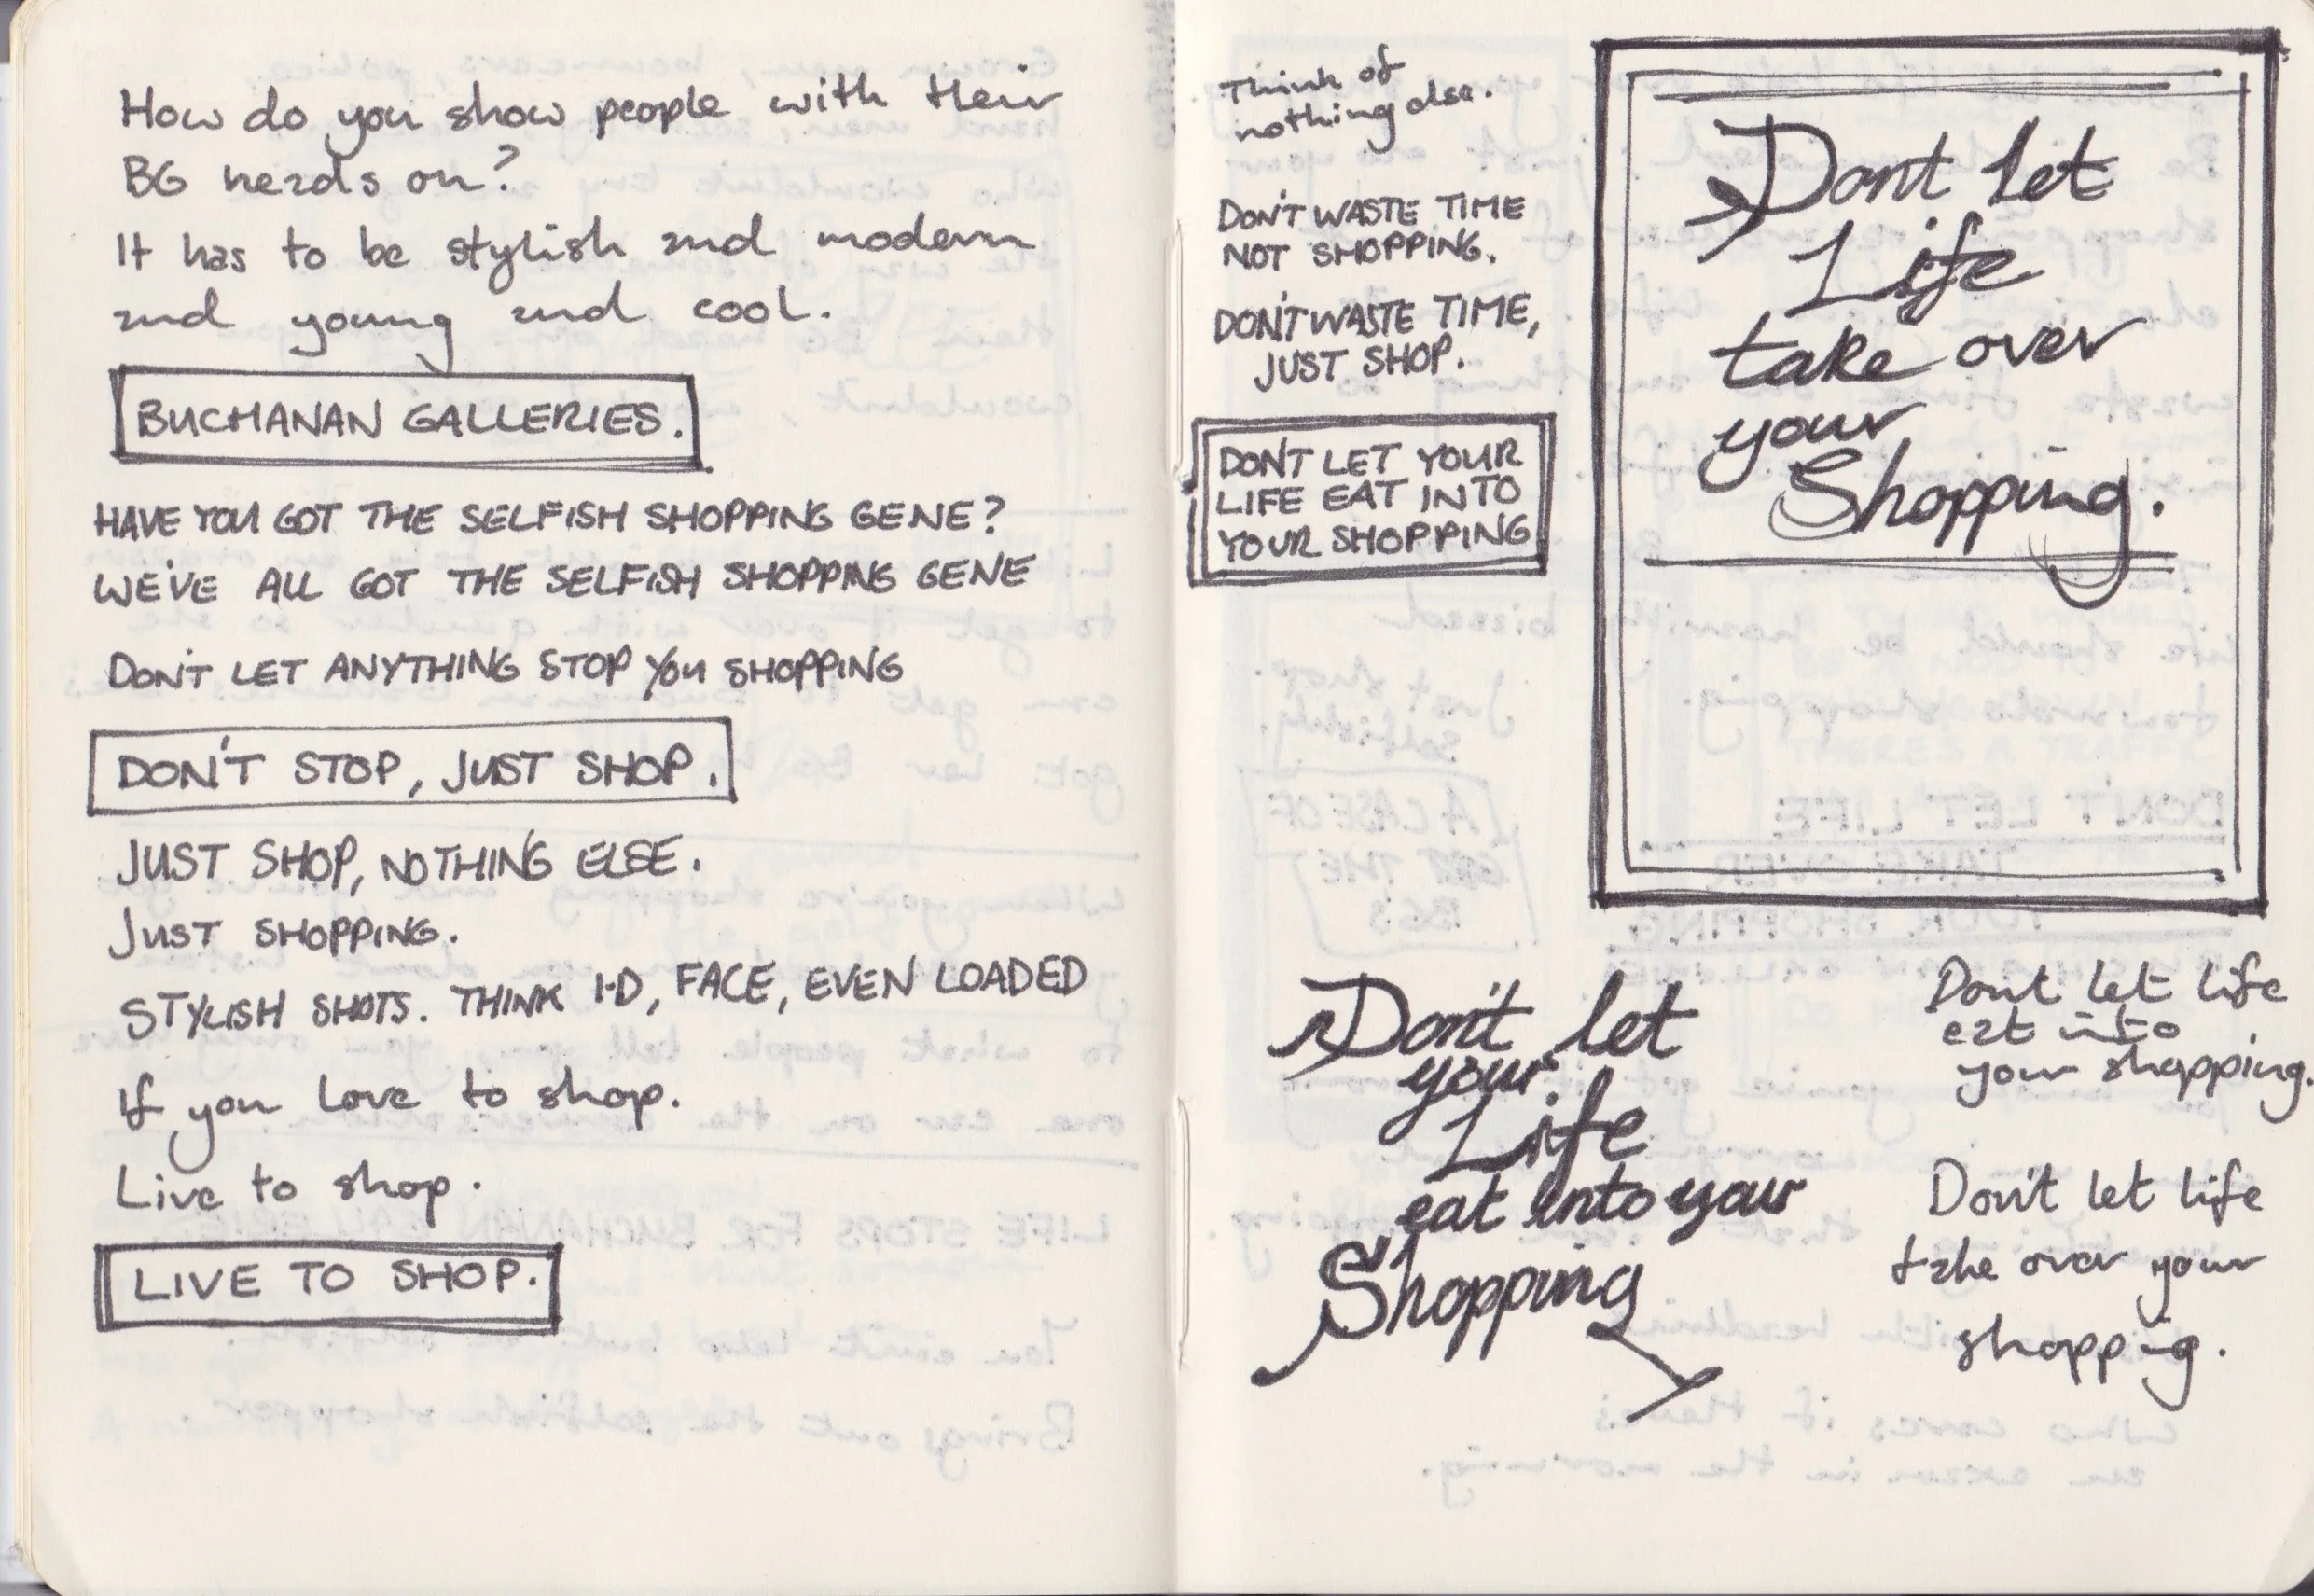 How do you show people with their
BG heads on?
It has to be stylish and modern
and young and cool.
BUCHANAN GALLERIES.
HAVE YOU GOT THE SELFISH SHOPPING GENE?
WE'VE ALL GOT THE SELFISH SHOPPING GENE
DON'T LET ANYTHING STOP YOU SHOPPING
DON'T STOP, JUST SHOP.
JUST SHOP, NOTHING ELSE.
JUST SHOPPING.
STYLISH SHOTS. THINK I-D, FACE, EVEN LOADED
If you love to shop.
Live to shop.
LIVE TO SHOP.
Think of
nothing else.
DON'T WASTE TIME
NOT SHOPPING.
DON'T WASTE TIME,
JUST SHOP.
DONT LET YOUR
LIFE EAT INTO
YOUR SHOPPING
Dont let
Life
take over
your
Shopping.
Don't let
your
Life
eat into your
Shopping
Dont let life
eat into
your shopping.
Don't let life
take over your
shopping.